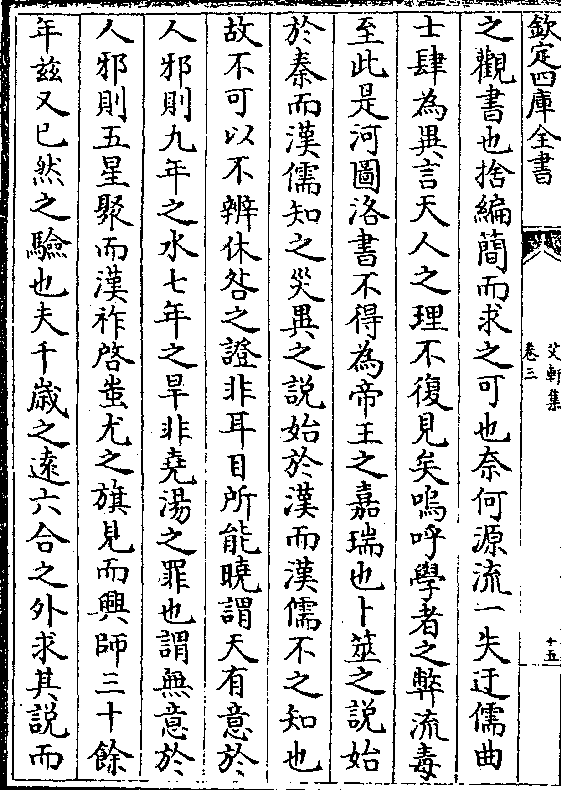 欽定四庫全書
艾軒集
卷三
十五
之觀書也捨編簡而求之可也奈何源流一失迂儒曲
士肆為異言天人之理不復見矣嗚呼學者之弊流毒
至此是河圖洛書不得為帝王之嘉瑞也卜筮之說始
於秦而漢儒知之災異之說始於漢而漢儒不之知也
故不可以不辨休咎之證非耳目所能曉謂天有意於
人邪則九年之水七年之旱非堯湯之罪也謂無意於
人邪則五星聚而漢祚啓蚩尤之旗見而興師三十餘
年兹又已然之驗也夫千歲之遠六合之外求其說而